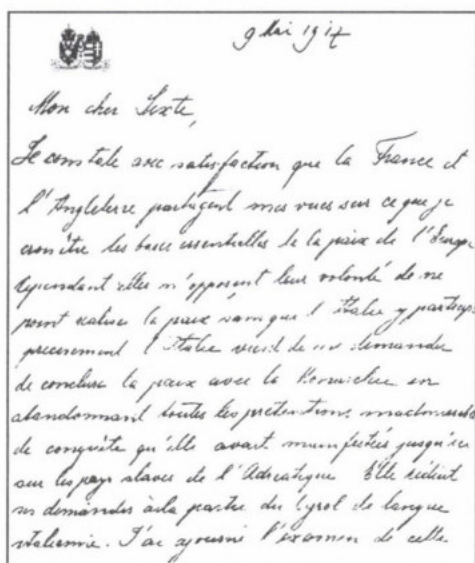 9 Mai 1917
Mon cher Sixte,
Je constate avec satisfaction que la France et
l'Angleterre partagent mes vues sur ce que je
crois être les bases essentielles de la paix de l'Europe
Cependant elles m'opposent leur volonté de ne
point réaliser la paix sans que l'Italie y participe
précisément l'Italie vient de me demander
de conclure la paix avec la Monarchie en
abandonnant toutes les prétentions inadmissibles
de conquête qu'elle avait manifestées jusqu'ici
sur les pays slaves de l'Adriatique Elle réduit
ses demandes à la partie du Tyrol de langue
italienne. J'ai ajourné l'examen de cette